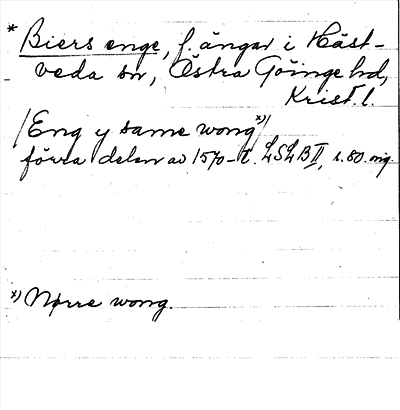 * Biers enge, f. ängar i Häst-
veda sn, Östra Göinge hd,
Krist. l.
/Eng y same wong x)/
förra delen av 1570-t. LSLB II, s. 80. mg.
x) Nørre wong.